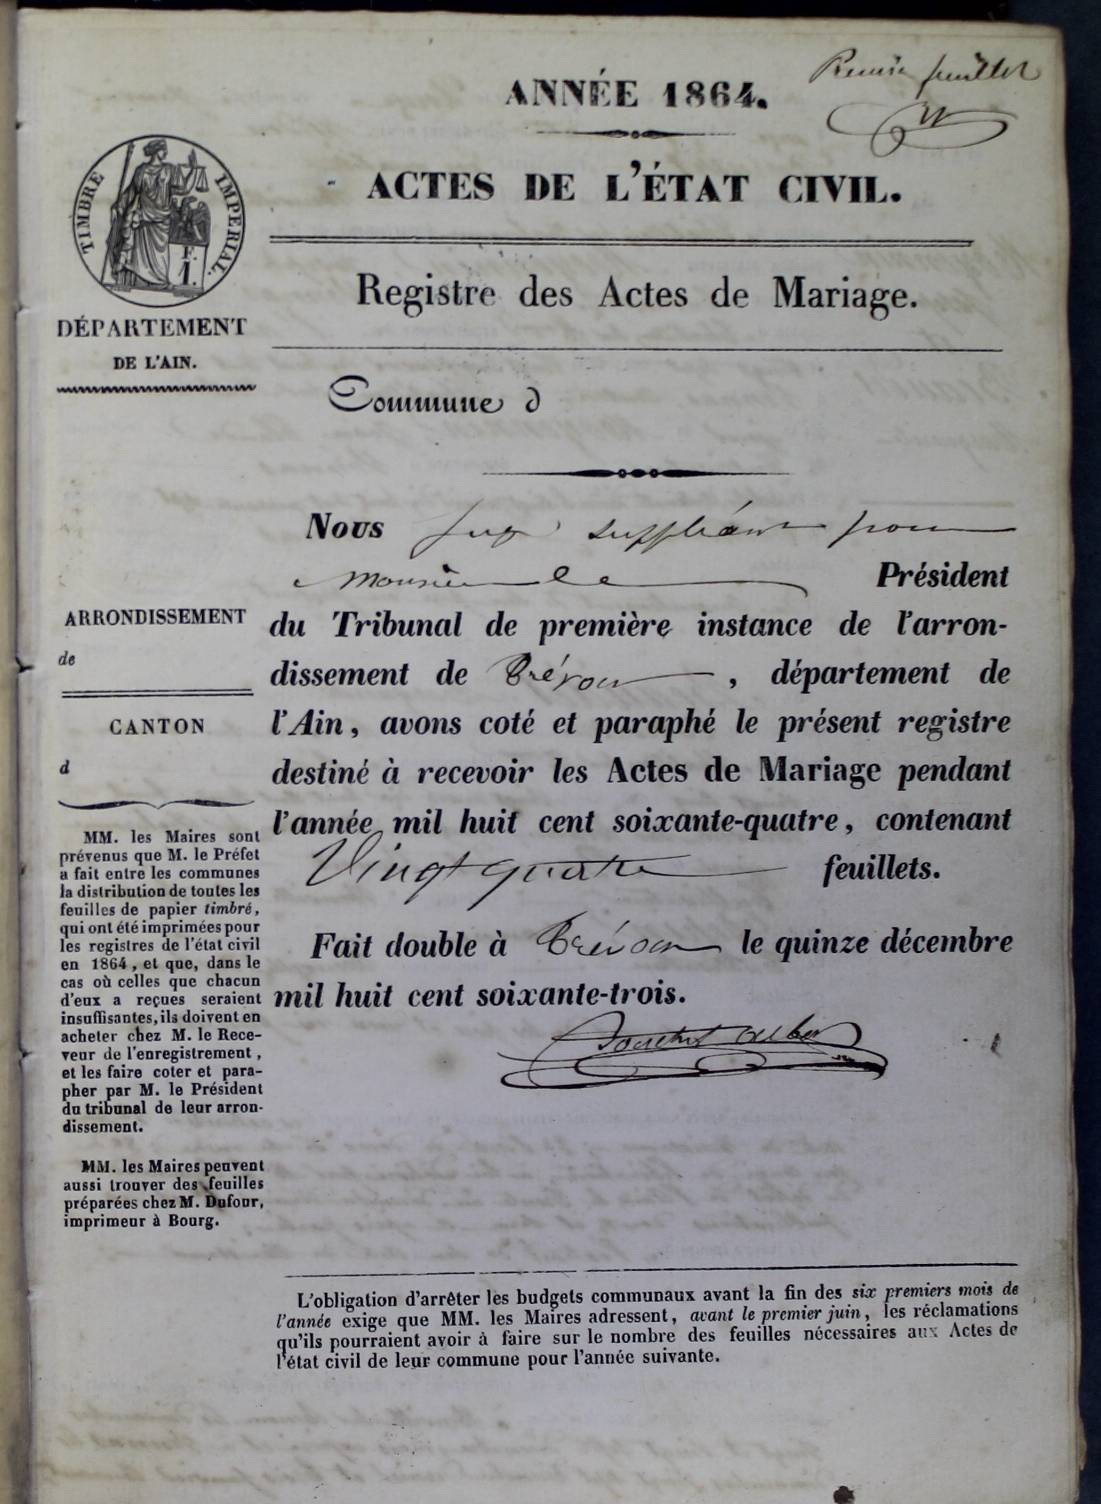 Premier feuillet
ANNÉE 1864.
ACTES DE L'ÉTAT CIVIL.
TIMBRE IMPERIAL.
F.
1.
DÉPARTEMENT
DE L'AIN.
Registre des Actes de Mariage.
Commune d
ARRONDISSEMENT
de
CANTON
d
MM. les Maires sont
prévenus que M. le Préfet
a fait entre les communes
la distribution de toutes les
feuilles de papier timbré,
qui ont été imprimées pour
les registres de l'état civil
en 1864, et que, dans le
cas où celles que chacun
d'eux a reçues seraient
insuffisantes, ils doivent en
acheter chez M. le Rece-
veur de l'enregistrement,
et les faire coter et para-
pher par M. le Président
du tribunal de leur arron-
dissement.
MM. les Maires peuvent
aussi trouver des feuilles
préparées chez M. Dufour,
imprimeur à Bourg.
Nous Juge suppléant pour
Monsieur le Président
du Tribunal de première instance de l'arron-
dissement de Trévoux, département de
l'Ain, avons coté et paraphé le présent registre
destiné à recevoir les Actes de Mariage pendant
l'année mil huit cent soixante-quatre, contenant
Vingt quatre feuillets.
Fait double à Trévoux le quinze décembre
mil huit cent soixante-trois.
L'obligation d'arrêter les budgets communaux avant la fin des six premiers mois de
l'année exige que MM. les Maires adressent, avant le premier juin, les réclamations
qu'ils pourraient avoir à faire sur le nombre des feuilles nécessaires aux Actes de
l'état civil de leur commune pour l'année suivante.